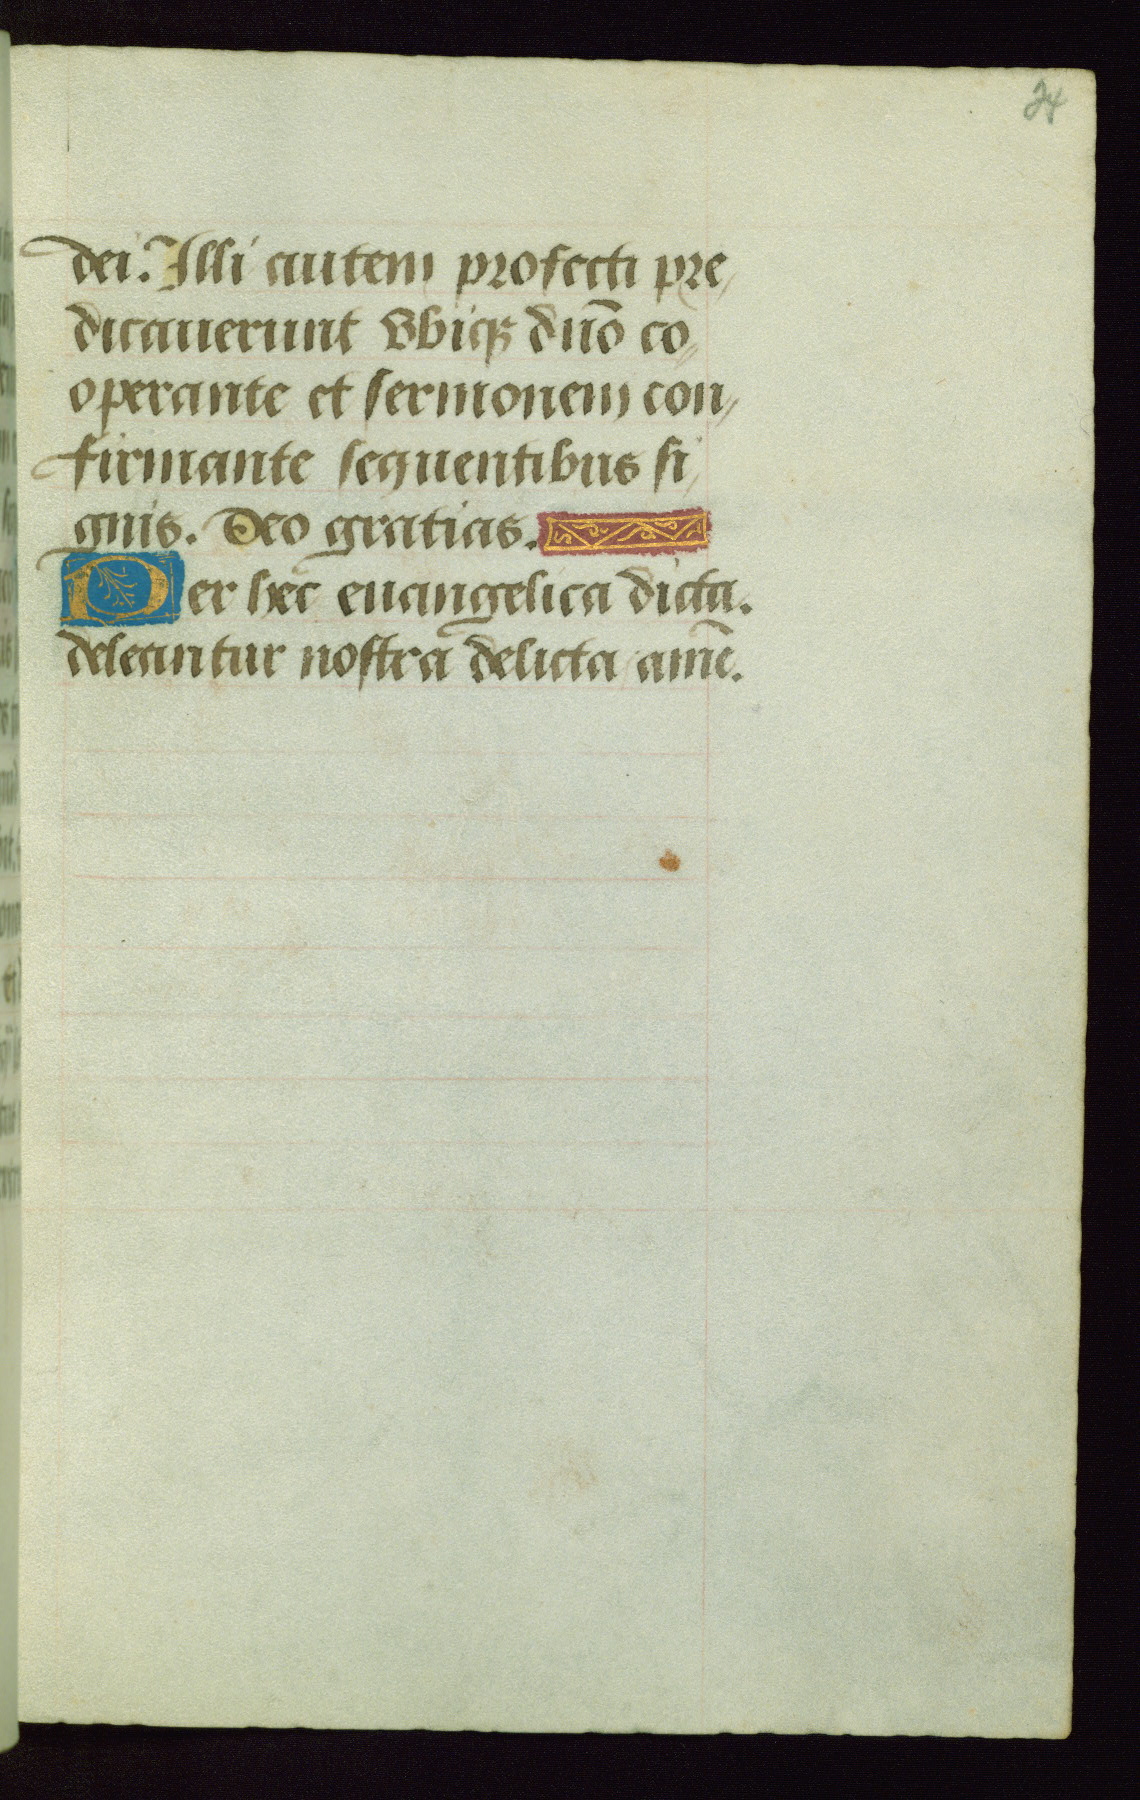 24
dei. Illi autem profecti pre,
dicauerunt vbiqꝫ dn̄o co,
operante et sermonem con,
firmante sequentibus si,
gnis. Deo gratias.
Per hec euangelica dicta.
deleantur nostra delicta amē.